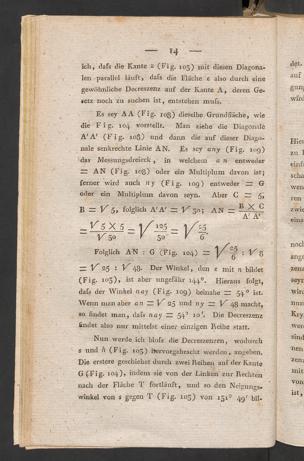 — 14 —
ich, dass die Kante z (Fig. 105) mit diesen Diagona-
len parallel läuft, dass die Fläche ε also durch eine
gewöhnliche Decreszenz auf der Kante A, deren Ge-
setz noch zu suchen ist, entstehen muss.
Es sey AA (Fig. 108) dieselbe Grundfläche, wie
die Fig. 104 vorstellt. Man ziehe die Diagonale
A'A' (Fig. 108) und dann die auf dieser Diago-
nale senkrechte Linie AN. Es sey any (Fig. 109)
das Messungsdreieck, in welchem an entweder
= AN (Fig. 108) oder ein Multiplum davon ist;
ferner wird auch ny (Fig. 109) entweder = G
oder ein Multiplum davon seyn. Aber C = 5,
B = √5, folglich A'A' = √30; AN = B × C / A'A'
= √5 × 5 / √30 = √125/30 = √25/6
Folglich AN : G (Fig. 104) = √25/6 : √8
= √25 : √48. Der Winkel, den ε mit n bildet
(Fig. 105), ist aber ungefähr 144°. Hieraus folgt,
dass der Winkel nay (Fig. 109) beinahe = 54° ist.
Wenn man aber an = √25 und ny = √48 macht,
so findet man, dass nay = 54° 10'. Die Decreszenz
findet also nur mittelst einer einzigen Reihe statt.
Nun werde ich bloss die Decreszenzen, wodurch
s und h (Fig. 105) hervorgebracht werden, angeben.
Die erstere geschieht durch zwei Reihen auf der Kante
G (Fig. 104), indem sie von der Linken zur Rechten
nach der Fläche T fortläuft, und so den Neigungs-
winkel von s gegen T (Fig. 105) von 151° 49' bil-